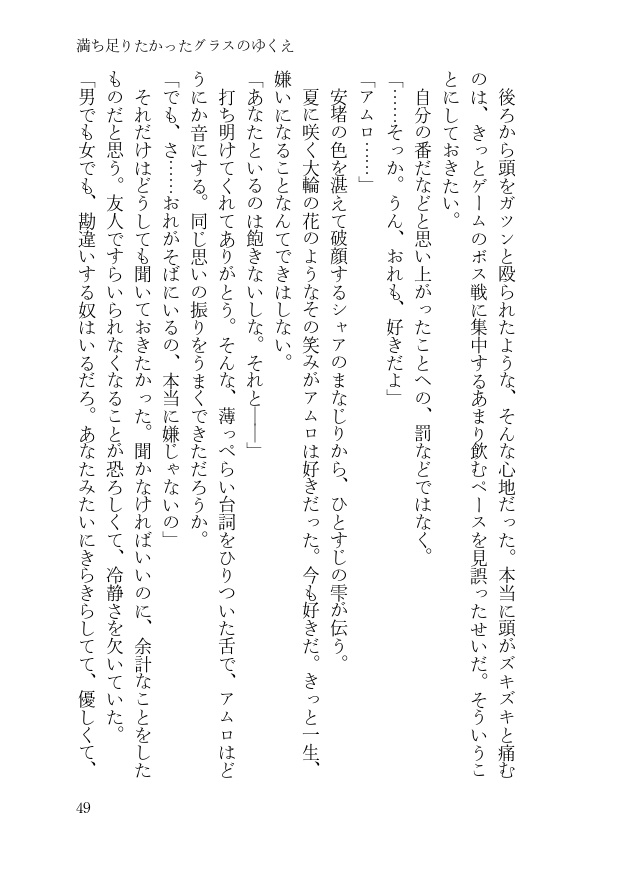 満ち足りたかったグラスのゆくえ
　後ろから頭をガツンと殴られたような、そんな心地だった。本当に頭がズキズキと痛む
のは、きっとゲームのボス戦に集中するあまり飲むペースを見誤ったせいだ。そういうこ
とにしておきたい。
　自分の番だなどと思い上がったことへの、罰などではなく。
「……そっか。うん、おれも、好きだよ」
「アムロ……」
　安堵の色を湛えて破顔するシャアのまなじりから、ひとすじの雫が伝う。
　夏に咲く大輪の花のようなその笑みがアムロは好きだった。今も好きだ。きっと一生、
嫌いになることなんてできはしない。
「あなたといるのは飽きないしな。それと――」
　打ち明けてくれてありがとう。そんな、薄っぺらい台詞をひりついた舌で、アムロはど
うにか音にする。同じ思いの振りをうまくできただろうか。
「でも、さ……おれがそばにいるの、本当に嫌じゃないの」
　それだけはどうしても聞いておきたかった。聞かなければいいのに、余計なことをした
ものだと思う。友人ですらいられなくなることが恐ろしくて、冷静さを欠いていた。
「男でも女でも、勘違いする奴はいるだろ。あなたみたいにきらきらしてて、優しくて、
49